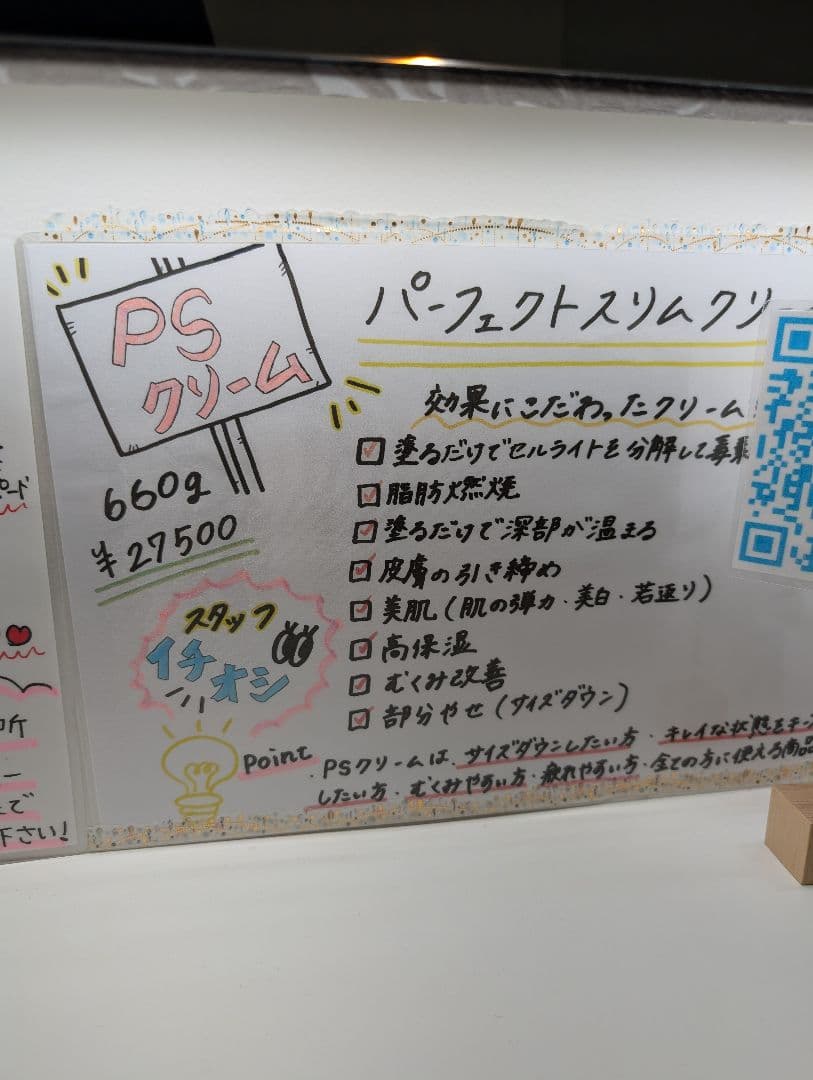 PS
クリーム
660g
¥27500
スタッフ
イチ
オシ
パーフェクトスリムクリ
効果にこだわったクリーム
塗るだけでセルライトを分解して
脂肪燃焼
塗るだけで深部が温まる
皮膚の引き締め
美肌(肌の弾力・美白・若返り)
高保湿
むくみ改善
部分やせ(サイズダウン)
Point
・PSクリームは、サイズダウンしたい方・キレイな状態をキー
したい方・むくみやすい方・疲れやすい方・全ての方に使える商品
ード
所
ー
で
下さい!